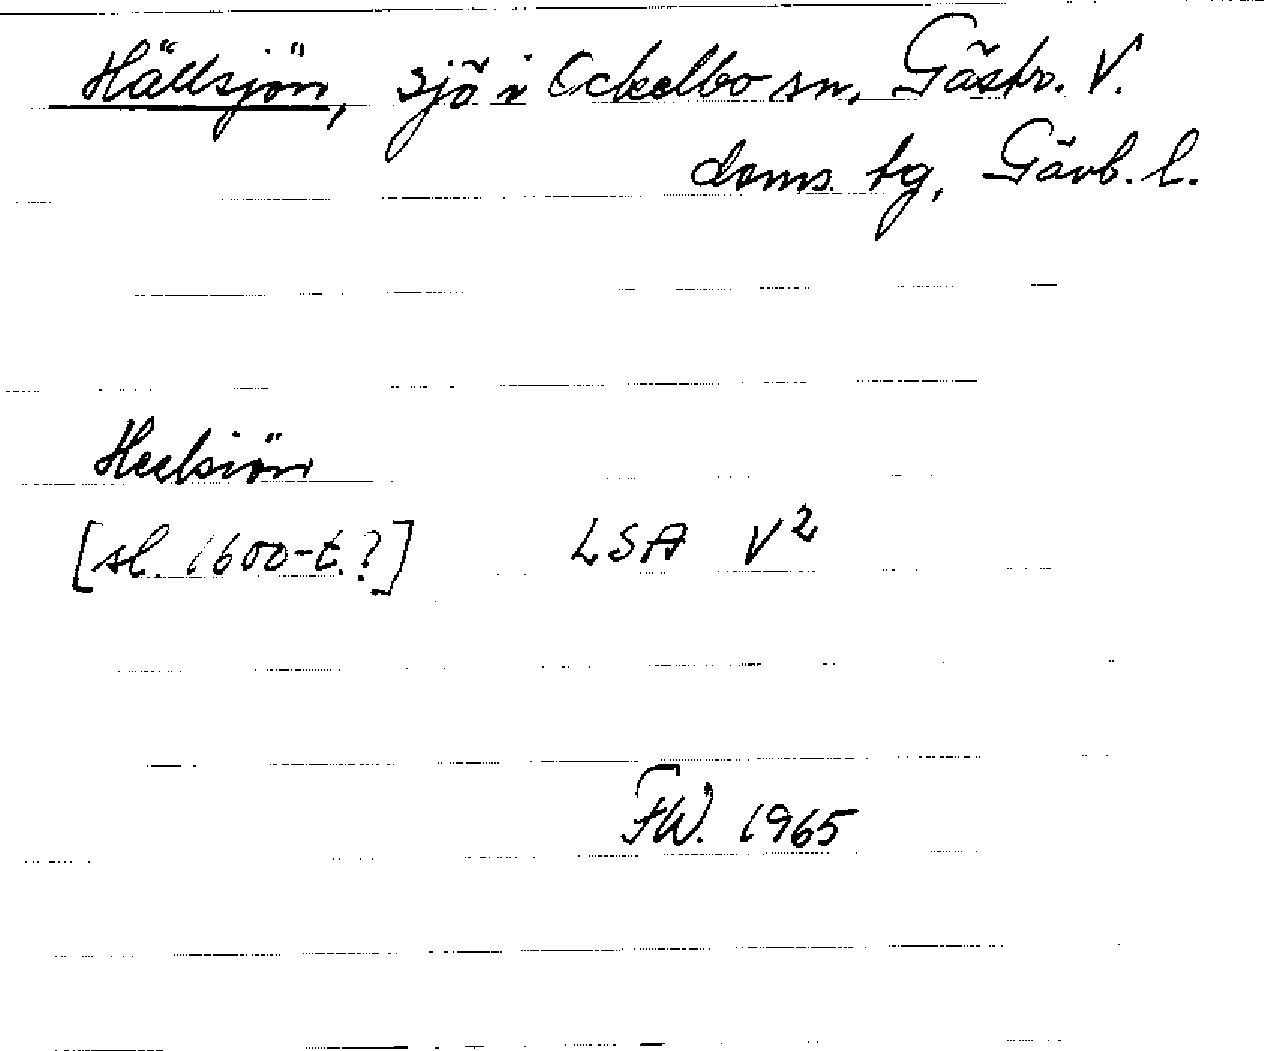 Hällsjön, sjö i Ockelbo sn, Gästr. V.
doms. tg, Gävb. l.
Heelsiön
[sl. 1600-t.?] LSA V²
FW. 1965